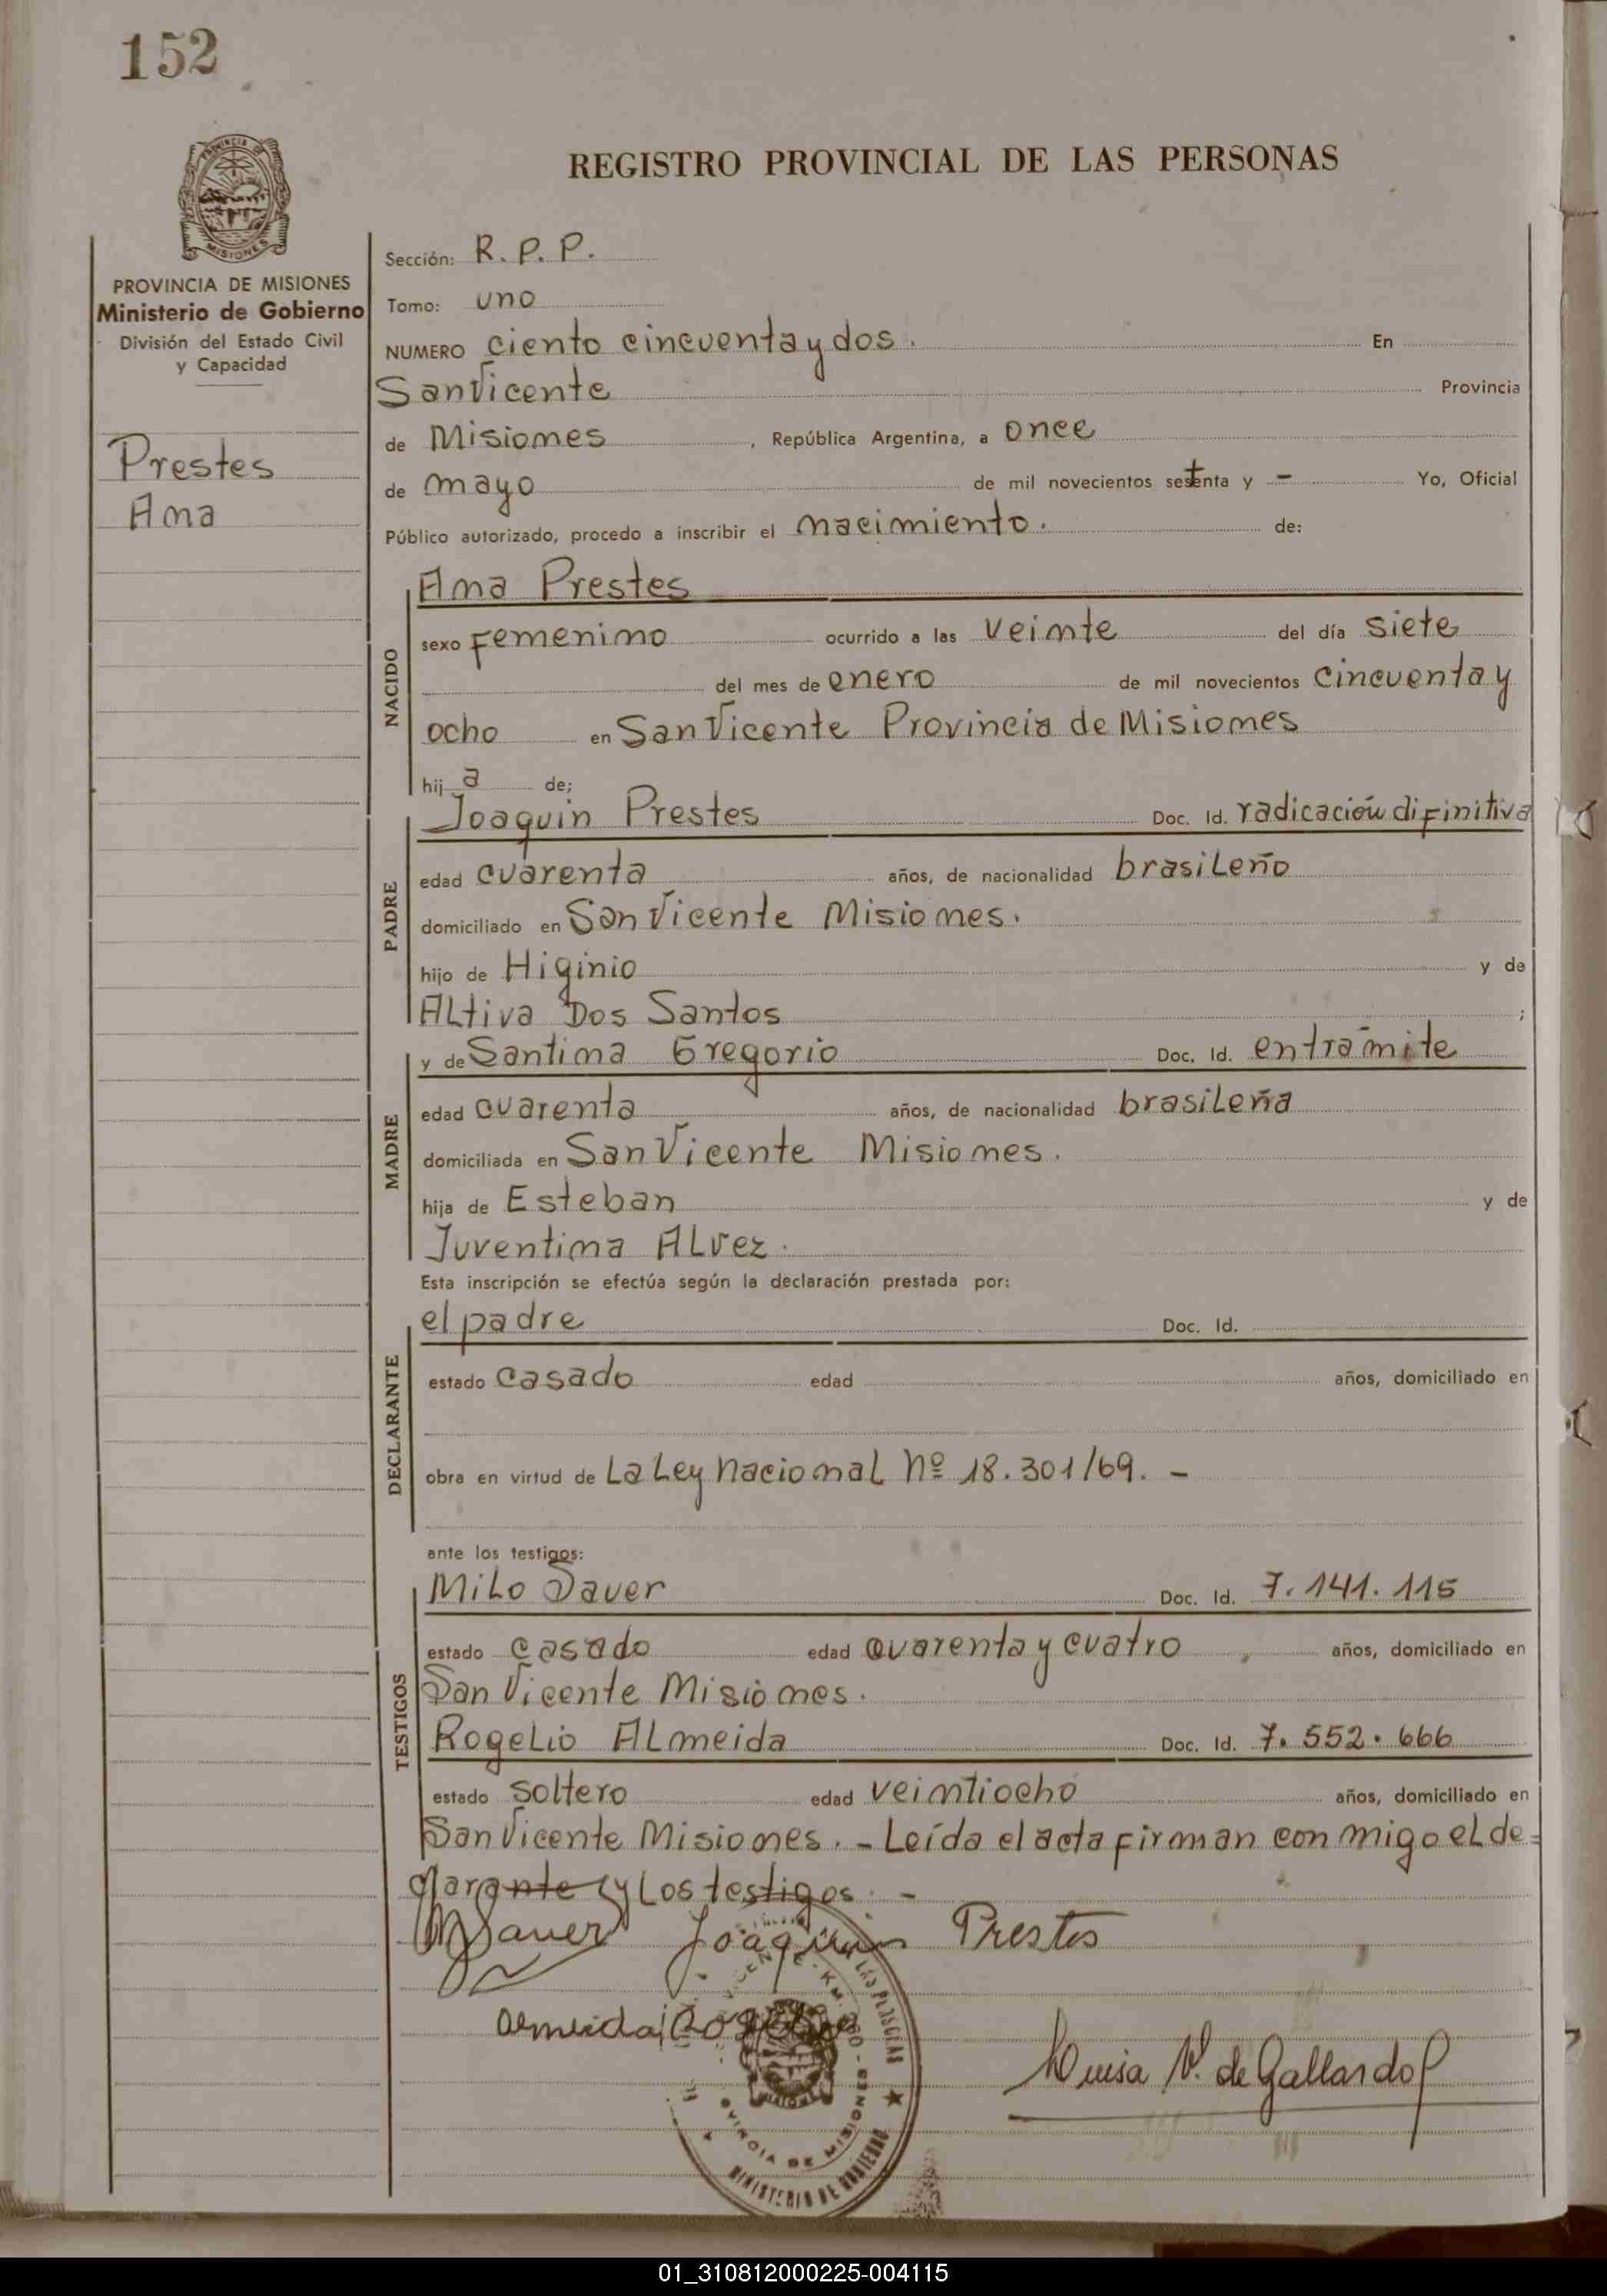 152
REGISTRO PROVINCIAL DE LAS PERSONAS
PROVINCIA DE
MISIONES
PROVINCIA DE MISIONES
Ministerio de Gobierno
División del Estado Civil
y Capacidad
Prestes
Ana
Sección: R. P. P.
Tomo: uno
NUMERO ciento cincuenta y dos. En
San Vicente Provincia
de Misiones, República Argentina, a once
de mayo de mil novecientos setenta y - Yo, Oficial
Público autorizado, procedo a inscribir el nacimiento. de:
NACIDO
Ana Prestes
sexo Femenino ocurrido a las veinte del día siete
del mes de enero de mil novecientos cincuenta y
ocho en San Vicente Provincia de Misiones
hija de;
PADRE
Joaquin Prestes Doc. Id. radicación difinitiva
edad cuarenta años, de nacionalidad brasileño
domiciliado en San Vicente Misiones.
hijo de Higinio y de
Altiva Dos Santos ;
MADRE
y de Santina Gregorio Doc. Id. en trámite
edad cuarenta años, de nacionalidad brasileña
domiciliada en San Vicente Misiones.
hija de Esteban y de
Juventina Alvez.
Esta inscripción se efectúa según la declaración prestada por:
DECLARANTE
el padre Doc. Id.
estado casado edad años, domiciliado en
obra en virtud de La Ley Nacional Nº 18.301/69. -
ante los testigos:
TESTIGOS
Milo Sauer Doc. Id. 7.141.115
estado casado edad cuarenta y cuatro años, domiciliado en
San Vicente Misiones.
Rogelio Almeida Doc. Id. 7.552.666
estado soltero edad veintiocho años, domiciliado en
San Vicente Misiones. - Leída el acta firman conmigo el de=
clarante y Los testigos. -
MSauer Joaquin Prestes
Almeida Rogelio
Luisa V. de Gallardo
PROVINCIA DE MISIONES
MINISTERIO DE GOBIERNO
01_310812000225-004115